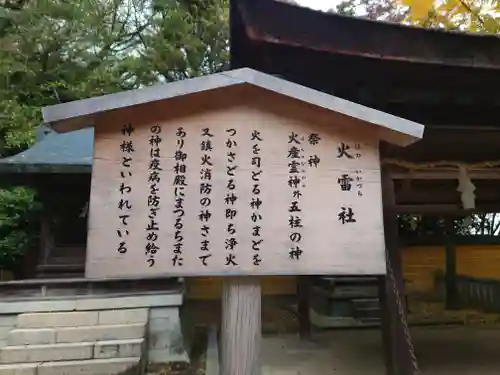 火雷社
ほ いかづち
祭神
火産霊神外五柱の神
火を司どる神かまどを
つかさどる神即ち浄火
又鎮火消防の神さまで
あり御相殿にまつるまた
の神は疫病を防ぎ止め給う
神様といわれている